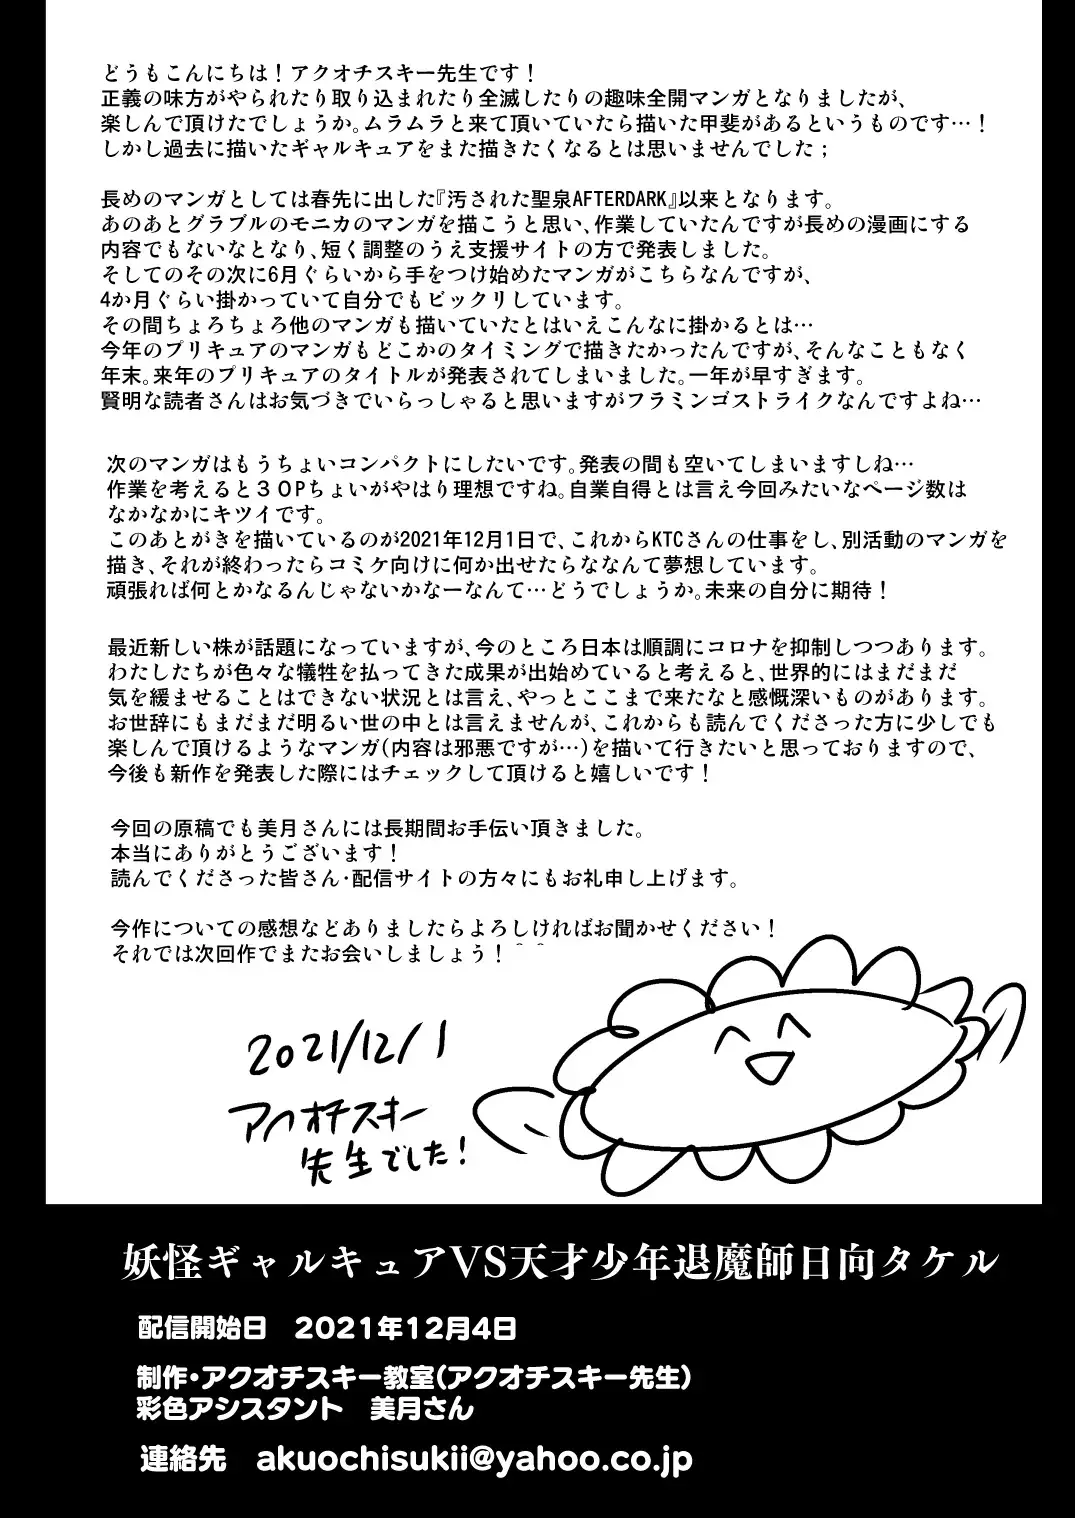 どうもこんにちは！アクオチスキー先生です！
正義の味方がやられたり取り込まれたり全滅したりの趣味全開マンガとなりましたが、
楽しんで頂けたでしょうか。ムラムラと来て頂いていたら描いた甲斐があるというものです…！
しかし過去に描いたギャルキュアをまた描きたくなるとは思いませんでした；
長めのマンガとしては春先に出した『汚された聖泉AFTERDARK』以来となります。
あのあとグラブルのモニカのマンガを描こうと思い、作業していたんですが長めの漫画にする
内容でもないなとなり、短く調整のうえ支援サイトの方で発表しました。
そしてのその次に6月ぐらいから手をつけ始めたマンガがこちらなんですが、
4か月ぐらい掛かっていて自分でもビックリしています。
その間ちょろちょろ他のマンガも描いていたとはいえこんなに掛かるとは…
今年のプリキュアのマンガもどこかのタイミングで描きたかったんですが、そんなこともなく
年末。来年のプリキュアのタイトルが発表されてしまいました。一年が早すぎます。
賢明な読者さんはお気づきでいらっしゃると思いますがフラミンゴストライクなんですよね…
次のマンガはもうちょいコンパクトにしたいです。発表の間も空いてしまいますしね…
作業を考えると３０Pちょいがやはり理想ですね。自業自得とは言え今回みたいなページ数は
なかなかにキツイです。
このあとがきを描いているのが2021年12月1日で、これからKTCさんの仕事をし、別活動のマンガを
描き、それが終わったらコミケ向けに何か出せたらななんて夢想しています。
頑張れば何とかなるんじゃないかなーなんて…どうでしょうか。未来の自分に期待！
最近新しい株が話題になっていますが、今のところ日本は順調にコロナを抑制しつつあります。
わたしたちが色々な犠牲を払ってきた成果が出始めていると考えると、世界的にはまだまだ
気を緩ませることはできない状況とは言え、やっとここまで来たなと感慨深いものがあります。
お世辞にもまだまだ明るい世の中とは言えませんが、これからも読んでくださった方に少しでも
楽しんで頂けるようなマンガ(内容は邪悪ですが…)を描いて行きたいと思っておりますので、
今後も新作を発表した際にはチェックして頂けると嬉しいです！
今回の原稿でも美月さんには長期間お手伝い頂きました。
本当にありがとうございます！
読んでくださった皆さん・配信サイトの方々にもお礼申し上げます。
今作についての感想などありましたらよろしければお聞かせください！
それでは次回作でまたお会いしましょう！
2021/12/1
アクオチスキー
先生でした！
妖怪ギャルキュアVS天才少年退魔師日向タケル
配信開始日　2021年12月4日
制作・アクオチスキー教室(アクオチスキー先生)
彩色アシスタント　美月さん
連絡先　akuochisukii@yahoo.co.jp